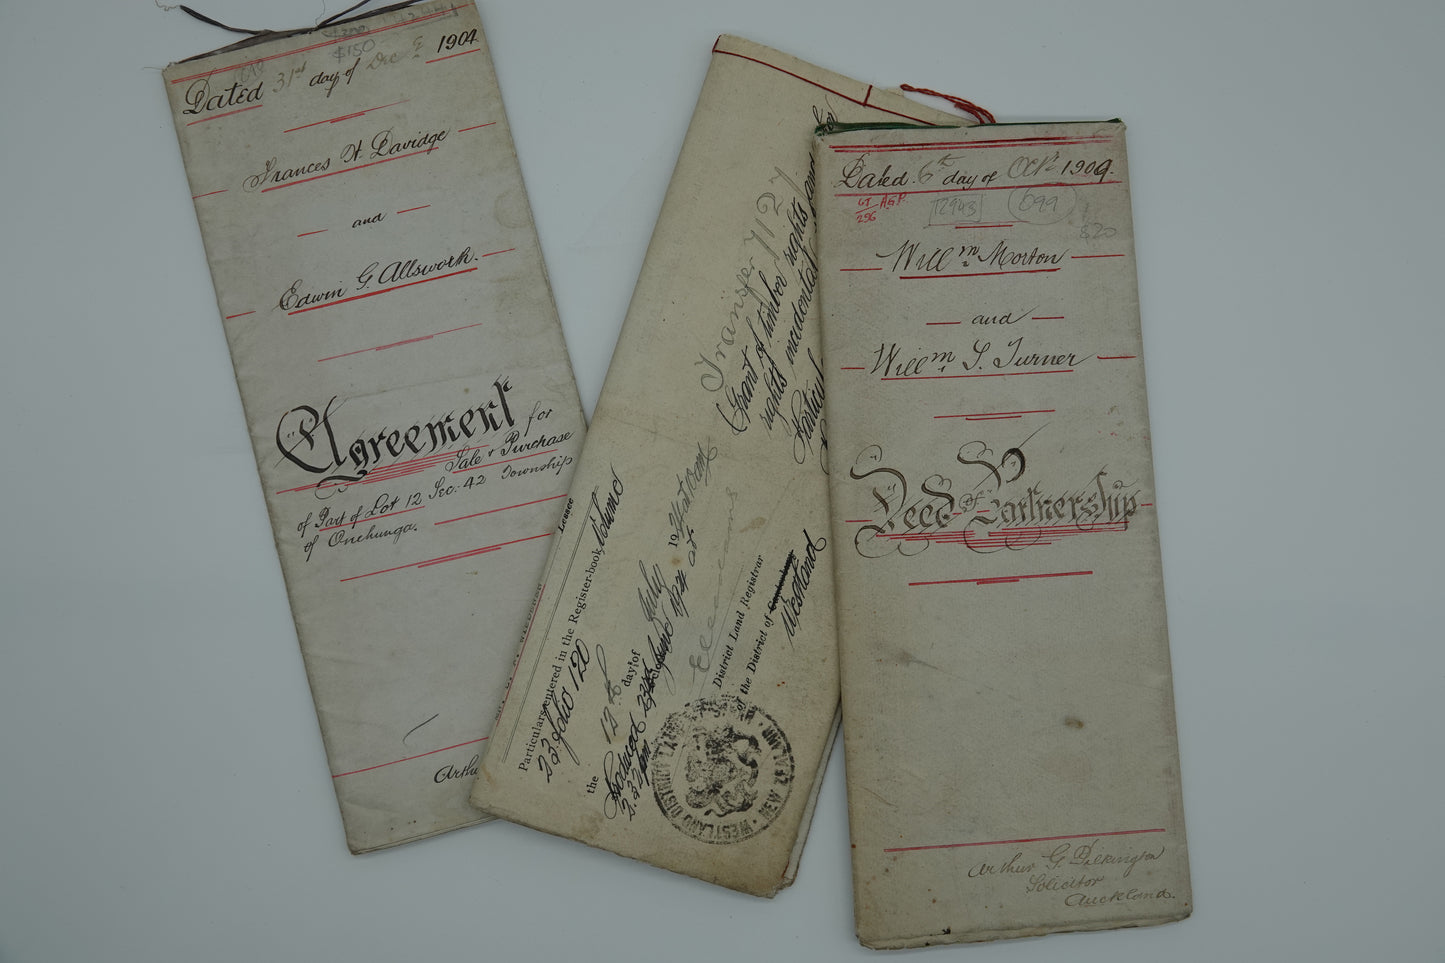 $150
Dated 31st day of Dec 1904
Frances H. Davidge
and
Edwin G. Allsworth.
Agreement for
Sale & Purchase
of Part of Lot 12 Sec: 42 Township
of Onehunga.
Transfer 7127
Grant of timber rights and
rights incidental
Particulars entered in the Register-book, Volume
23 folio 120
Lessee
the 12th day of July 19
Produced
1924 at
2.32 pm
District Land Registrar
of the District of
Westland
WESTLAND DISTRICT NEW ZEALAND
Dated 6th day of Oct. 1909.
A.G.P.
296
12943
699
$20
Willm Morton
and
Willm S. Turner
Deed of Partnership
Arthur G. Pilkington
Solicitor
Auckland.